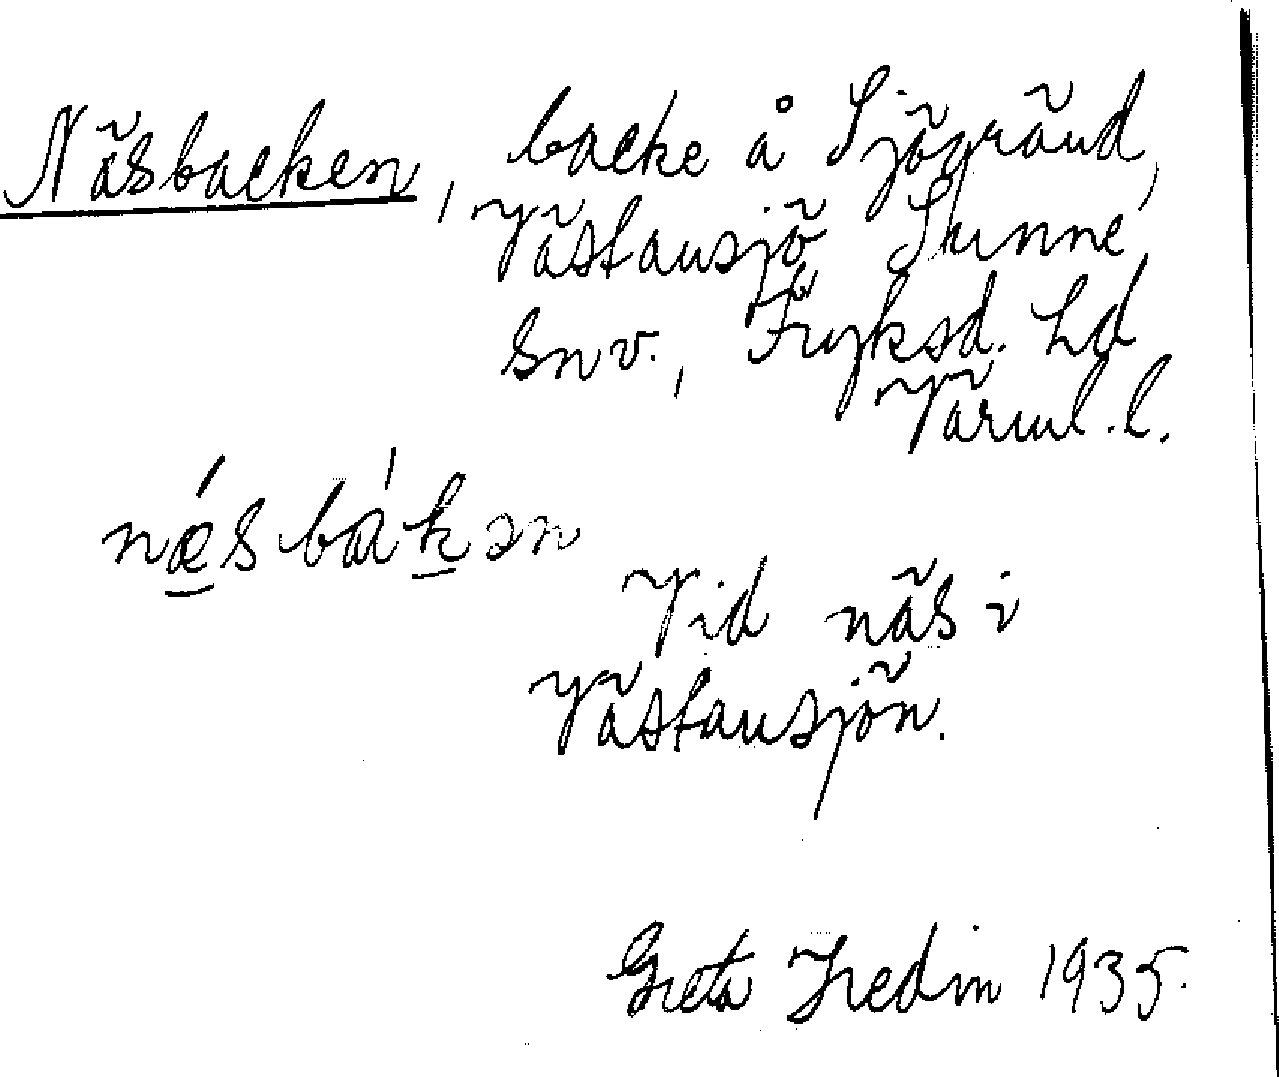 Näsbacken, backe å Sjögränd,
Västansjö Sunne
snv., Fryksd. hd
Värml. l.
næ´sbák ən
Vid näs i
Västansjön.
Greta Hedin 1935.